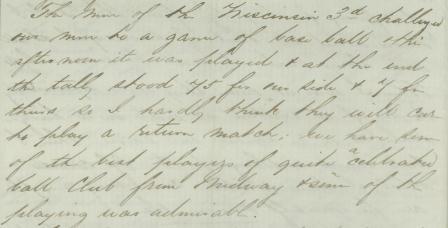 The men of the Wisconsin 3d challenged
our men to a game of base ball & this
afternoon it was played & at the end
the tally stood 75 for our side & 7 for
theirs so I hardly think they will care
to play a return match. We have some
of the best players of quite a celebrated
ball Club from Medway & some of the
playing was admirable.